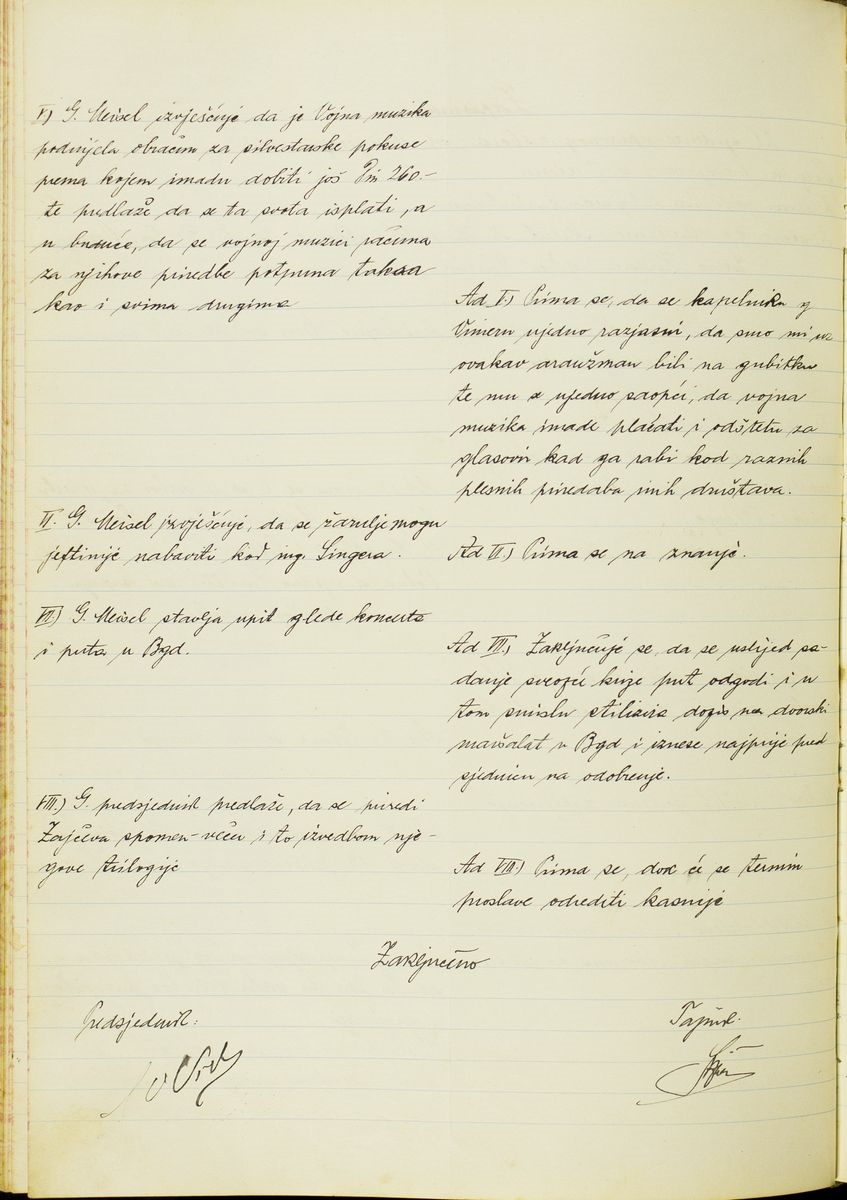 V) G. Meisel izvješćuje da je Vojna muzika
podnijela obračun za silvestarske pokuse
prema kojem imadu dobiti još Din 260.-
te predlaže da se ta svota isplati, a
u buduće, da se vojnoj muzici računa
za njihove priredbe potpuna taksa
kao i svima drugima
Ad V.) Prima se, da se kapelniku g
Vimeru ujedno razjasni, da smo mi uz
ovakav aranžman bili na gubitku
te mu se ujedno saopći, da vojna
muzika imade plaćati i odštetu za
glasovir kad ga rabi kod raznih
plesnih priredaba inih društava.
VI. G. Meisel izvješćuje, da se žarulje mogu
jeftinije nabaviti kod ing. Singera.
Ad VI.) Prima se na znanje.
VII.) G. Meisel stavlja upit glede koncerta
i puta u Bgd.
Ad VII.) Zaključuje se, da se uslijed sa-
danje sveopće krize put odgodi i u
tom smislu stilizira dopis na dvorski
maršalat u Bgd i iznese najprije pred
sjedniku na odobrenje.
VIII.) G. predsjednik predlaže, da se priredi
Zajčeva spomen-večer i to izvedbom nje-
gove trilogije
Ad VIII.) Prima se, dok će se termin
proslave odrediti kasnije
Zaključeno
Predsjednik:
Tajnik: